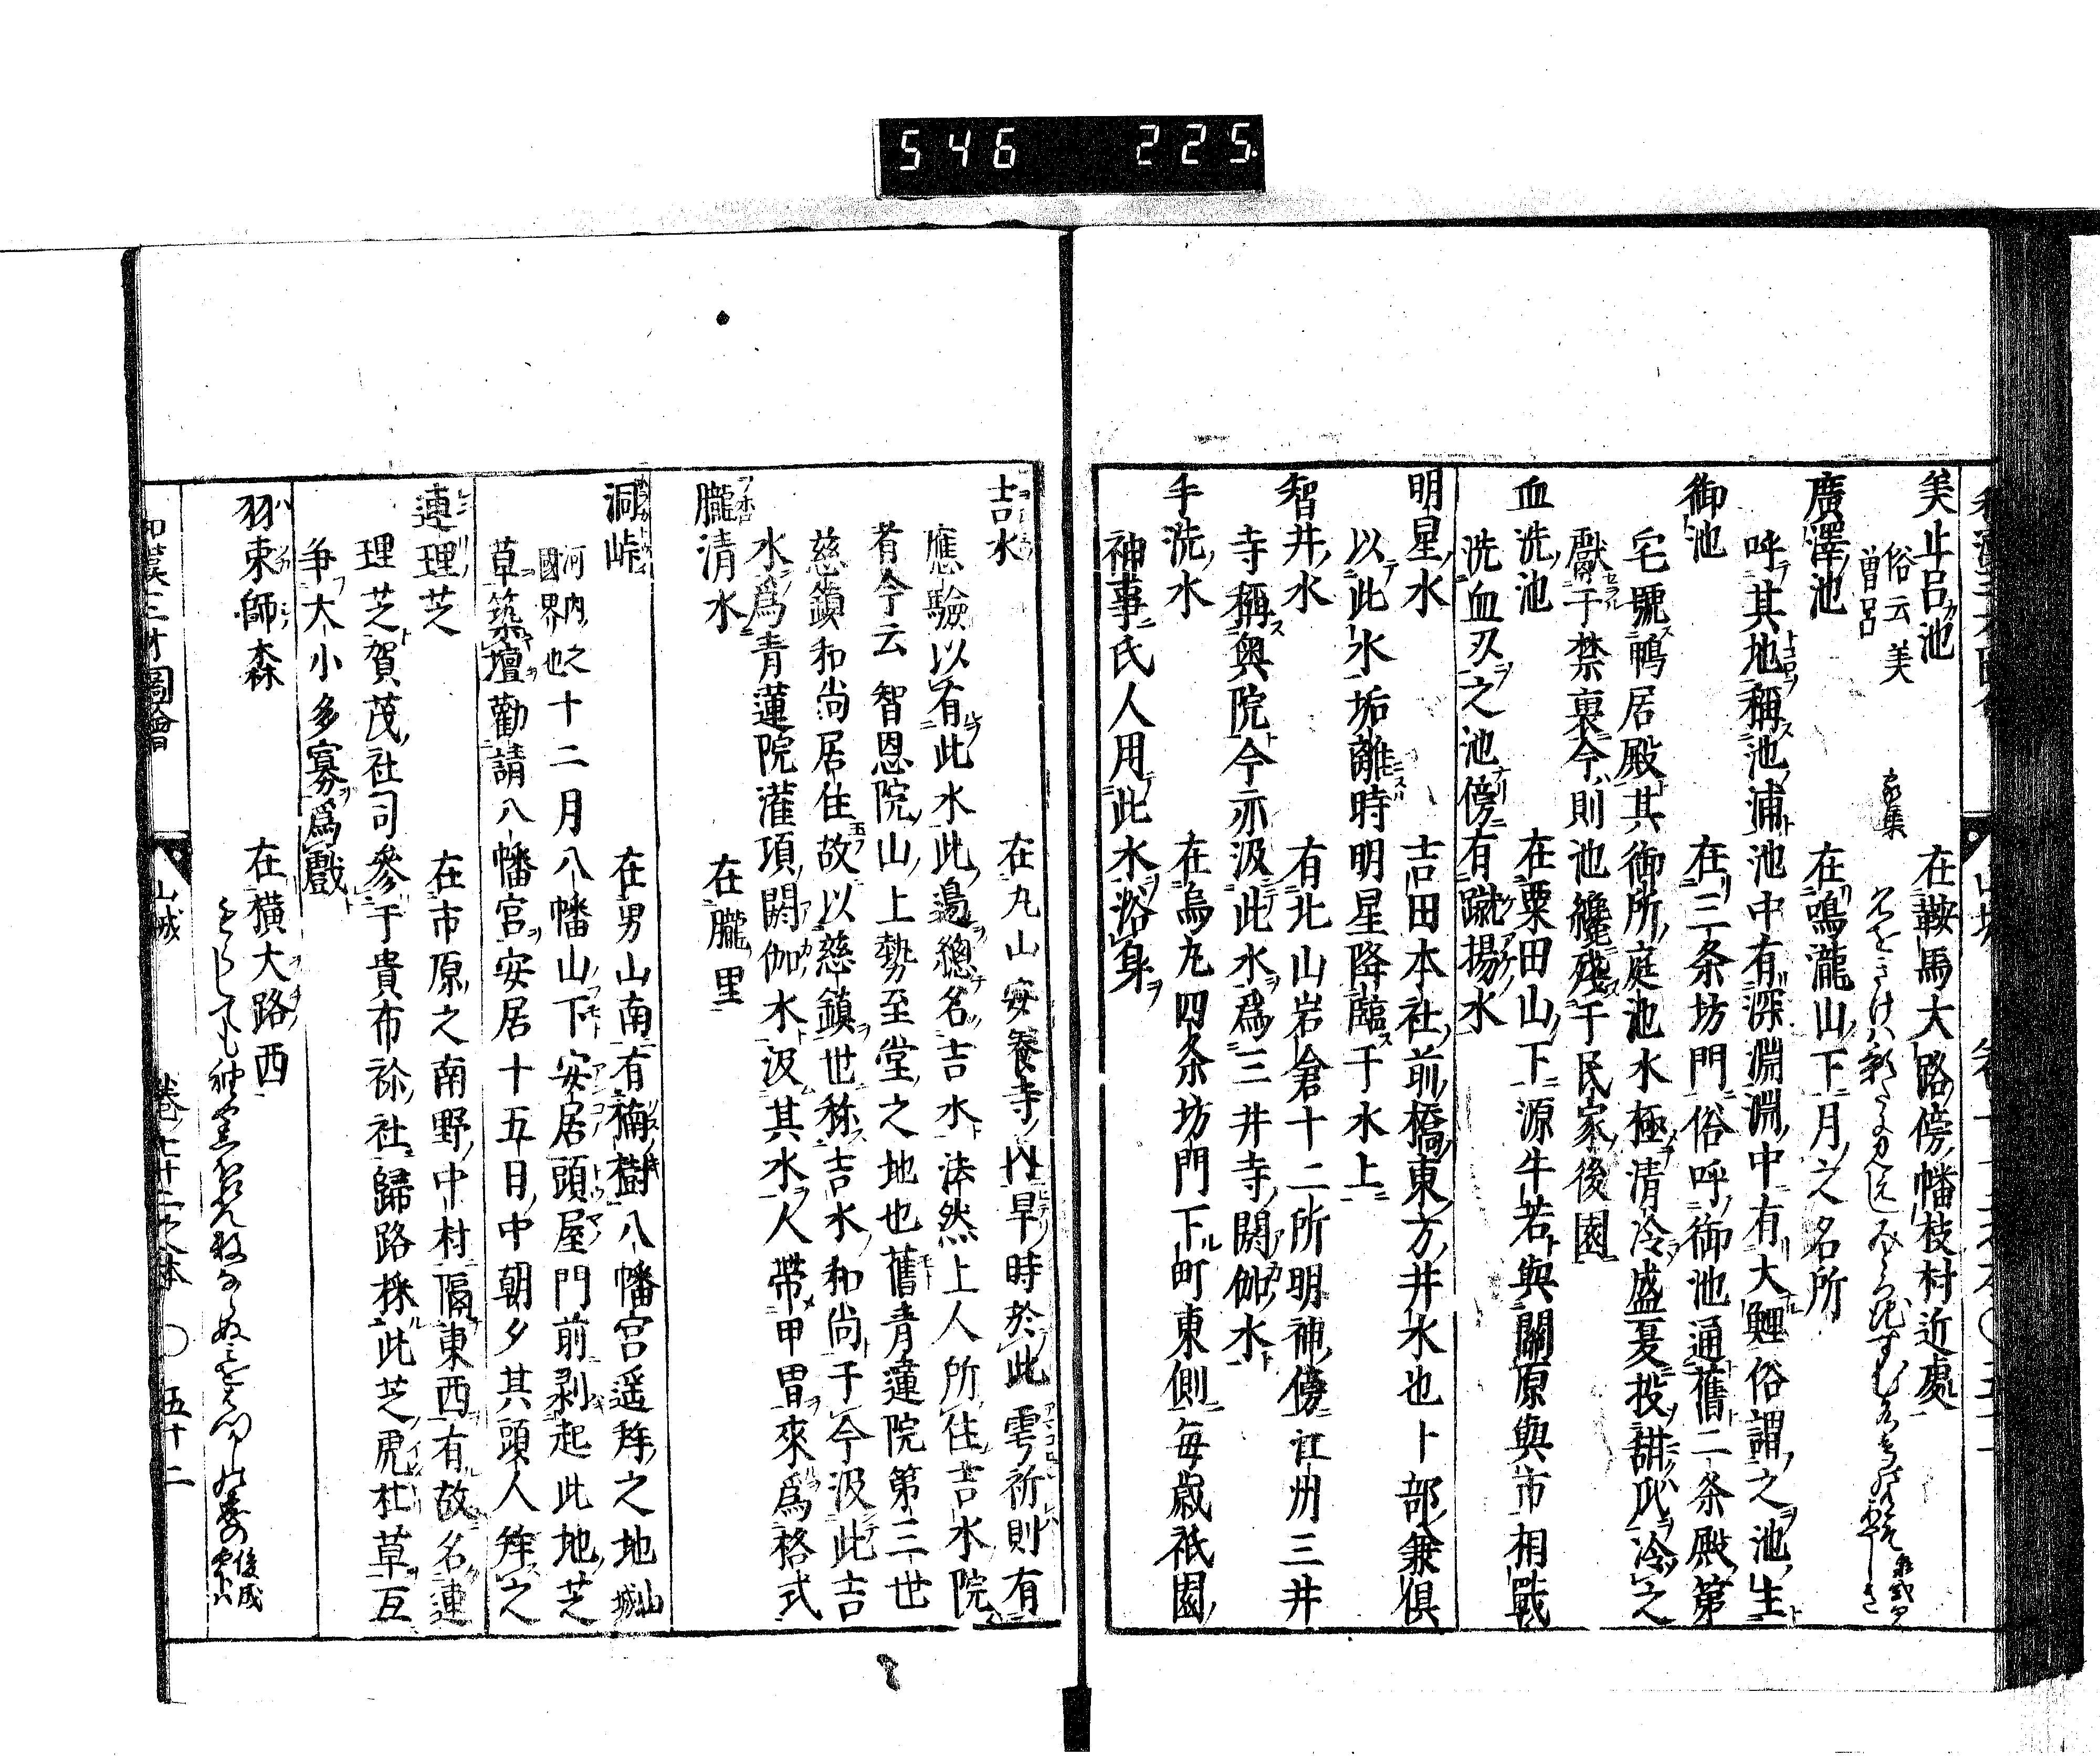 546 225
美止呂池 在鞍馬大路傍幡枝村近處
俗云美
曽呂
家集
廣澤池 在鳴瀧山下月之名所
呼其地稱池浦池中有深淵淵中有大鯉俗謂之池生
御池 在三条坊門俗呼御池通舊二条殿第
宅號鴨居殿其御所庭池水極清冷盛夏投甜瓜冷之
獻于禁裏今則池纔殘于民家後園
血洗池 在粟田山下源牛若與關原與市相戰
洗血刃之池傍有蹴揚水
明星水 吉田本社前橋東方井水也卜部兼俱
以此水垢離時明星降臨于水上
智井水 有北山岩倉十二所明神傍江州三井
寺稱奥院今亦汲此水爲三井寺閼伽水
手洗水 在烏丸四条坊門下町東側毎歳祇園
神事氏人用此水浴身
吉水 在丸山安養寺内旱時於此雩祈則有
應驗以有此水此邉總名吉水法然上人所住吉水院
者今云智恩院山上勢至堂之地也舊青蓮院第三世
慈鎮和尚居住故以慈鎮世称吉水和尚于今汲此吉
水爲青蓮院灌頂閼伽水汲其水人帶甲冑來爲格式
朧清水 在朧里
洞峠 在男山南有楠樹八幡宮遥拜之地山城
河内之
國界也
十二月八幡山下安居頭屋門前剥起此地芝
草築壇勸請八幡宮安居十五日中朝夕其頭人拜之
連理芝 在市原之南野中村隔東西有故名連
理芝賀茂社司參于貴布祢社歸路採此芝虎杖草互
争大小多寡爲戲
羽束師森 在横大路西
後成
和漢三才圖會 山城 卷七十二之本 〇 五十二